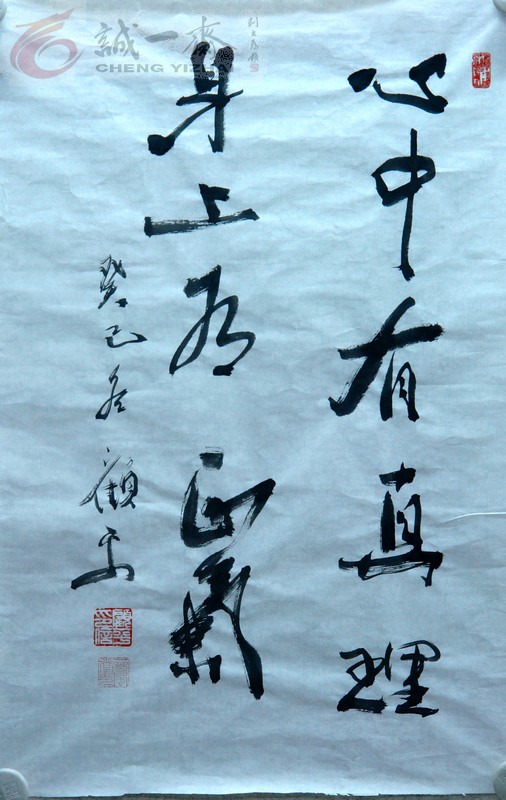 心中有真理
身上有正氣
癸巳冬 顧工
誠一齋
CHENG YIZHAI